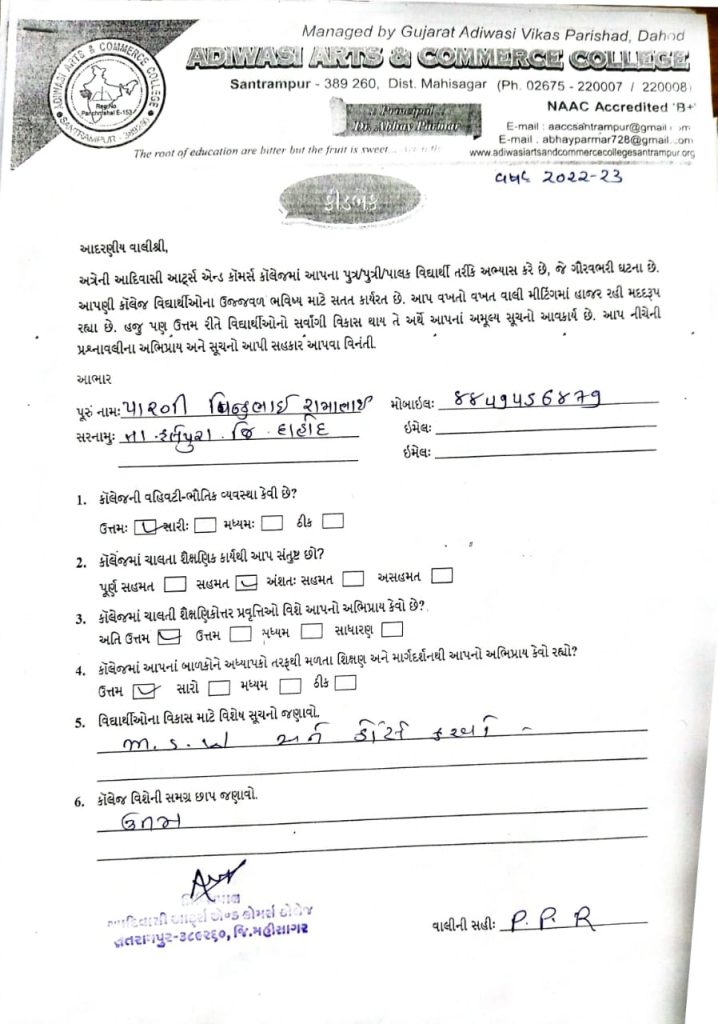 Managed by Gujarat Adiwasi Vikas Parishad, Dahod
ADIWASI ARTS & COMMERCE COLLEGE
Santrampur - 389 260, Dist. Mahisagar (Ph. 02675 - 220007 / 220008)
ADIWASI ARTS & COMMERCE COLLEGE
Reg.No
Panchmahal E-153
SANTRAMPUR - 389260
NAAC Accredited 'B+'
:: Principal ::
Dr. Abhay Parmar
E-mail : aaccsantrampur@gmail.com
E-mail : abhayparmar728@gmail.com
The root of education are bitter but the fruit is sweet...
www.adiwasiartsandcommercecollegesantrampur.org
વર્ષ 2022-23
ફીડબેક
આદરણીય વાલીશ્રી,
અત્રેની આદિવાસી આર્ટ્સ એન્ડ કૉમર્સ કૉલેજમાં આપના પુત્ર/પુત્રી/પાલક વિદ્યાર્થી તરીકે અભ્યાસ કરે છે, જે ગૌરવભરી ઘટના છે.
આપણી કૉલેજ વિદ્યાર્થીઓના ઉજ્જવળ ભવિષ્ય માટે સતત કાર્યરત છે. આપ વખતો વખત વાલી મીટિંગમાં હાજર રહી મદદરૂપ
રહ્યા છે. હજુ પણ ઉત્તમ રીતે વિદ્યાર્થીઓનો સર્વાંગી વિકાસ થાય તે અર્થે આપનાં અમૂલ્ય સૂચનો આવકાર્ય છે. આપ નીચેની
પ્રશ્નાવલીના અભિપ્રાય અને સૂચનો આપી સહકાર આપવા વિનંતી.
આભાર
પૂરું નામ: પારગી રામાભાઈ મોબાઇલ: ૬૬૫૧૫56૬૭૧
સરનામુ: જિ. દાહોદ ઇમેલ:
ઇમેલ:
1. કૉલેજની વહિવટી-ભૌતિક વ્યવસ્થા કેવી છે?
ઉત્તમ: સારી: મધ્યમ: ઠીક
2. કૉલેજમાં ચાલતા શૈક્ષણિક કાર્યથી આપ સંતુષ્ટ છો?
પૂર્ણ સહમત સહમત અંશત: સહમત અસહમત
3. કૉલેજમાં ચાલતી શૈક્ષણિકોત્તર પ્રવૃત્તિઓ વિશે આપનો અભિપ્રાય કેવો છે?
અતિ ઉત્તમ ઉત્તમ મધ્યમ સાધારણ
4. કૉલેજમાં આપનાં બાળકોને અધ્યાપકો તરફથી મળતા શિક્ષણ અને માર્ગદર્શનથી આપનો અભિપ્રાય કેવો રહ્યો?
ઉત્તમ સારો મધ્યમ ઠીક
5. વિદ્યાર્થીઓના વિકાસ માટે વિશેષ સૂચનો જણાવો.
M.S.W કોર્ષ કરવા
6. કૉલેજ વિશેની સમગ્ર છાપ જણાવો.
ઉતમ
આદિવાસી આર્ટ્સ એન્ડ કોમર્સ કોલેજ
સંતરામપુર-૩૮૯૨૬૦, જિ.મહીસાગર
વાલીની સહી: P. P. R